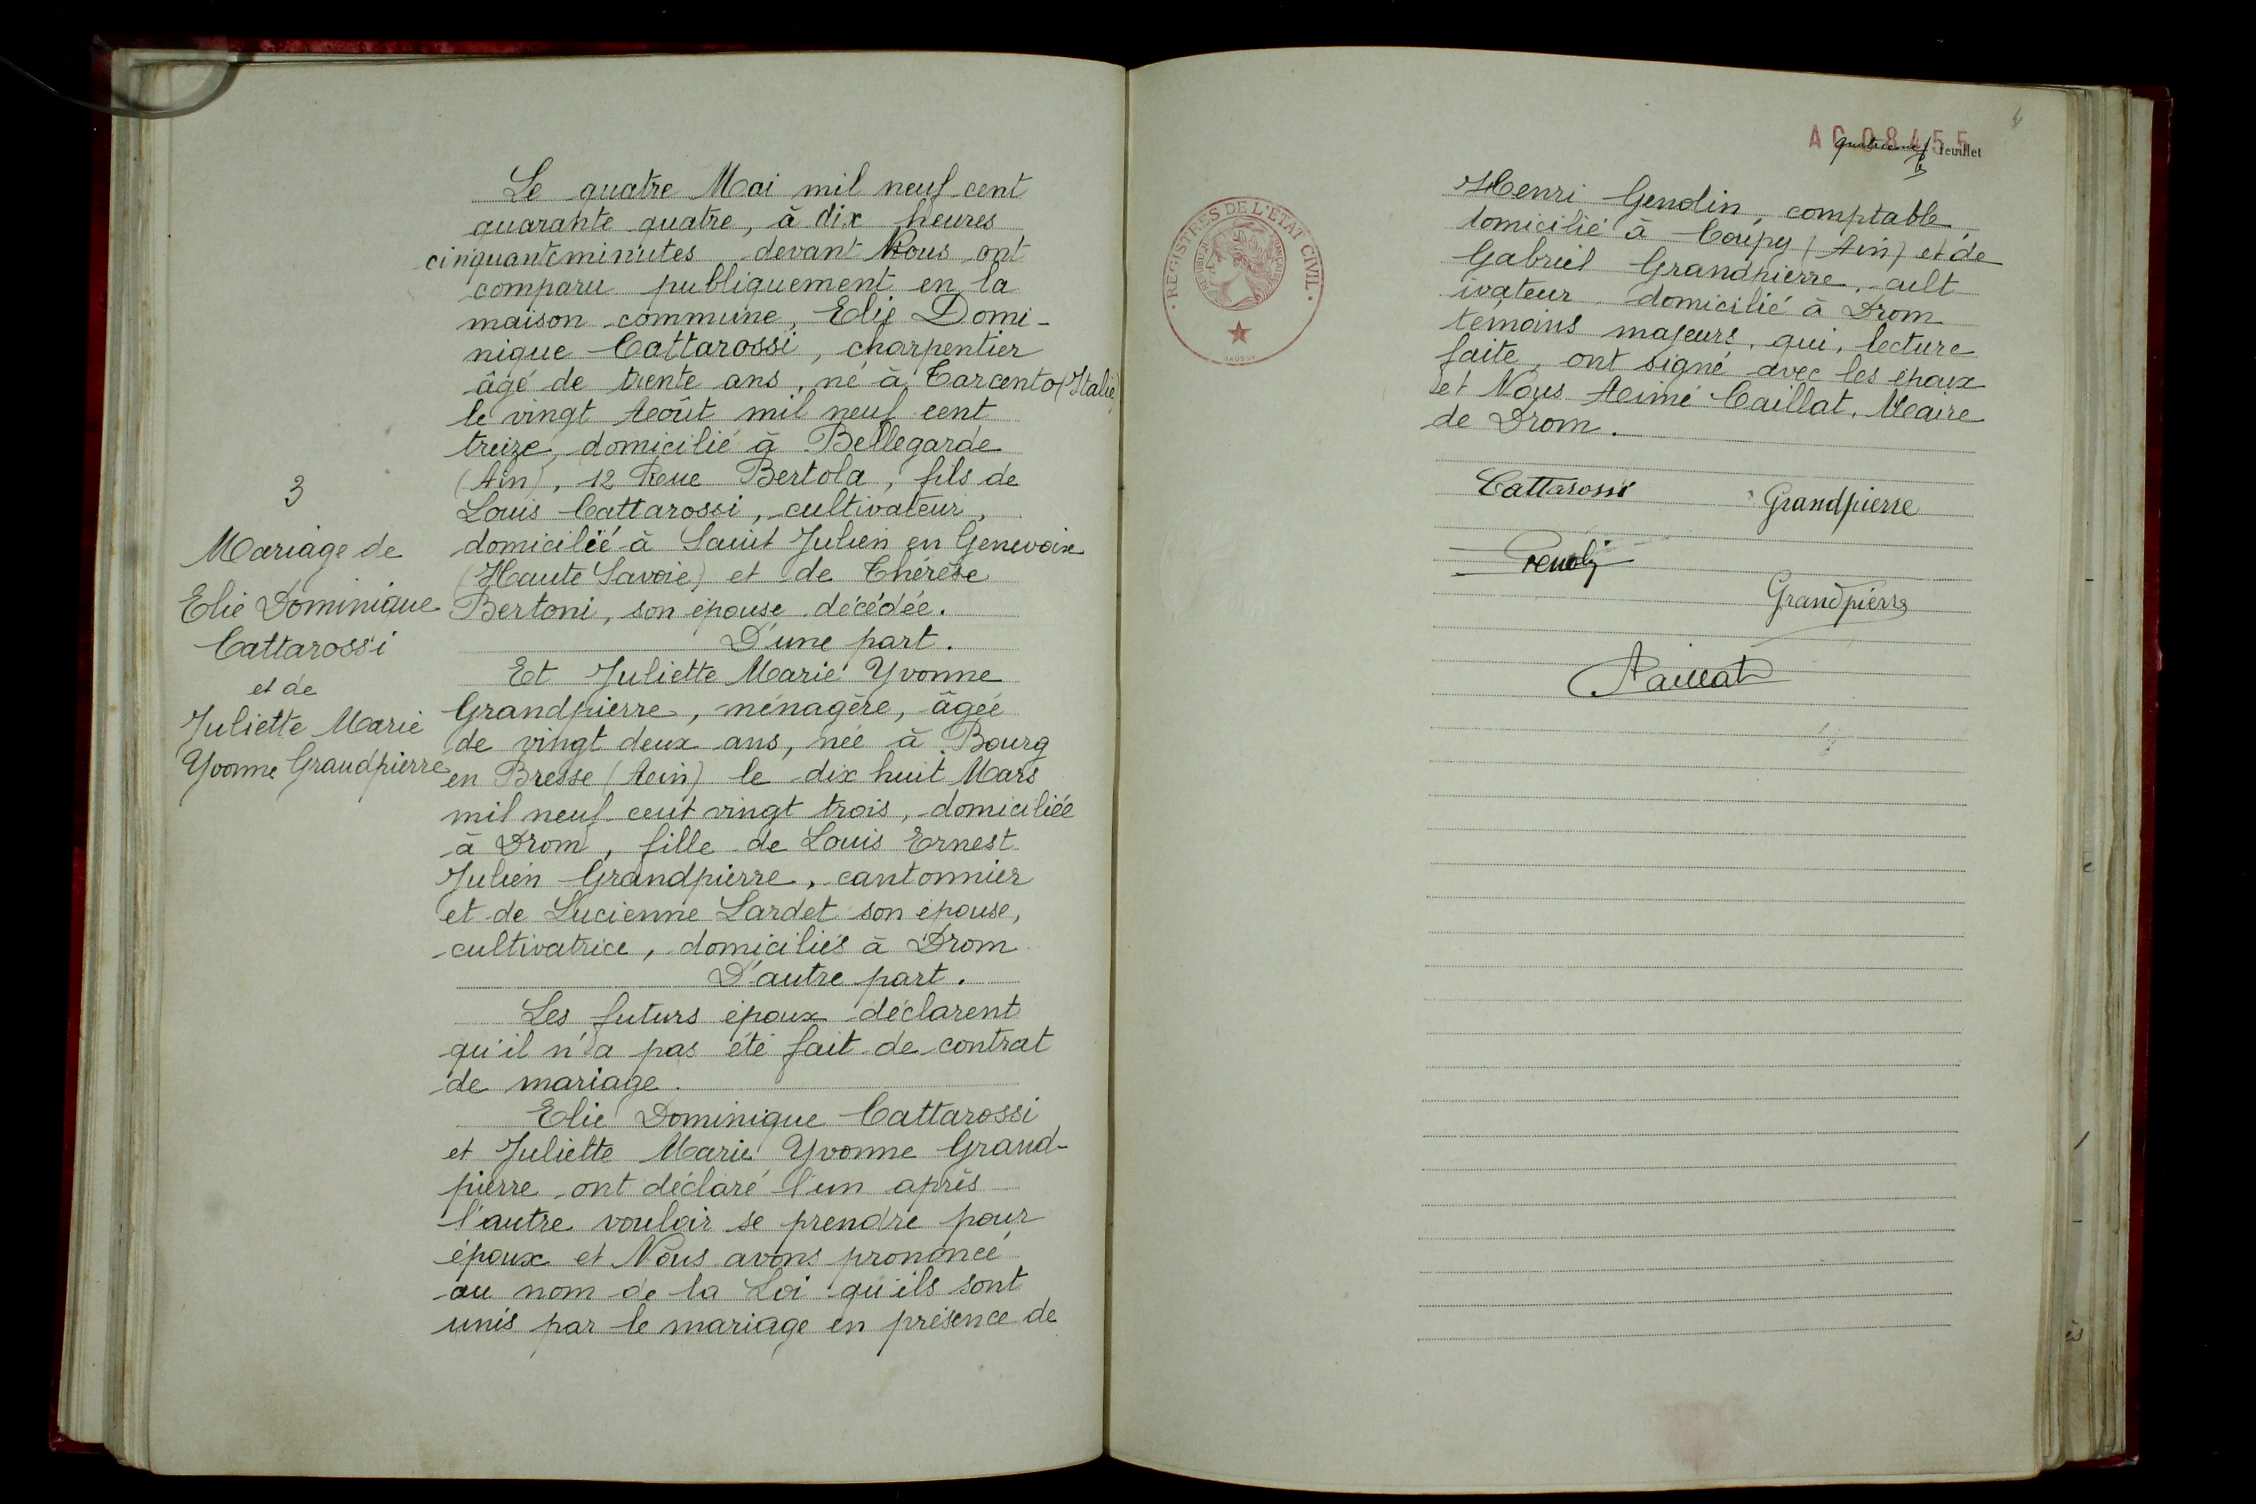 Le quatre Mai mil neuf cent
quarante quatre, à dix heures
cinquante minutes devant Nous ont
comparu publiquement en la
maison commune, Elie Domi-
nique Cattarossi, charpentier
âgé de trente ans, né à Tarcento (Italie)
le vingt Août mil neuf cent
treize, domicilié à Bellegarde
(Ain), 12 Rue Bertola, fils de
Louis Cattarossi, cultivateur,
domicilié à Saint Julien en Genevoix
(Haute Savoie) et de Thérèse
Bertoni, son épouse décédée.
D'une part.
Et Juliette Marie Yvonne
Grandpierre, ménagère, âgée
de vingt deux ans, née à Bourg
en Bresse (Ain) le dix huit Mars
mil neuf cent vingt trois, domiciliée
à Drom, fille de Louis Ernest
Julien Grandpierre, cantonnier
et de Lucienne Lardet son épouse,
cultivatrice, domiciliés à Drom
D'autre part.
Les futurs époux déclarent
qu'il n'a pas été fait de contrat
de mariage.
Elie Dominique Cattarossi
et Juliette Marie Yvonne Grand-
pierre ont déclaré l'un après
l'autre vouloir se prendre pour
époux et Nous avons prononcé
au nom de la Loi qu'ils sont
unis par le mariage en présence de
3
Mariage de
Elie Dominique
Cattarossi
et de
Juliette Marie
Yvonne Grandpierre
4
AC 08455
quatrième feuillet
REGISTRES DE L'ÉTAT CIVIL
Henri Genolin, comptable,
domicilié à Coupy (Ain) et de
Gabriel Grandpierre, cult
ivateur domicilié à Drom
témoins majeurs, qui, lecture
faite, ont signé avec les époux
et Nous Aimé Caillat, Maire
de Drom.
Cattarossi
Grandpierre
Grandpierre
Caillat